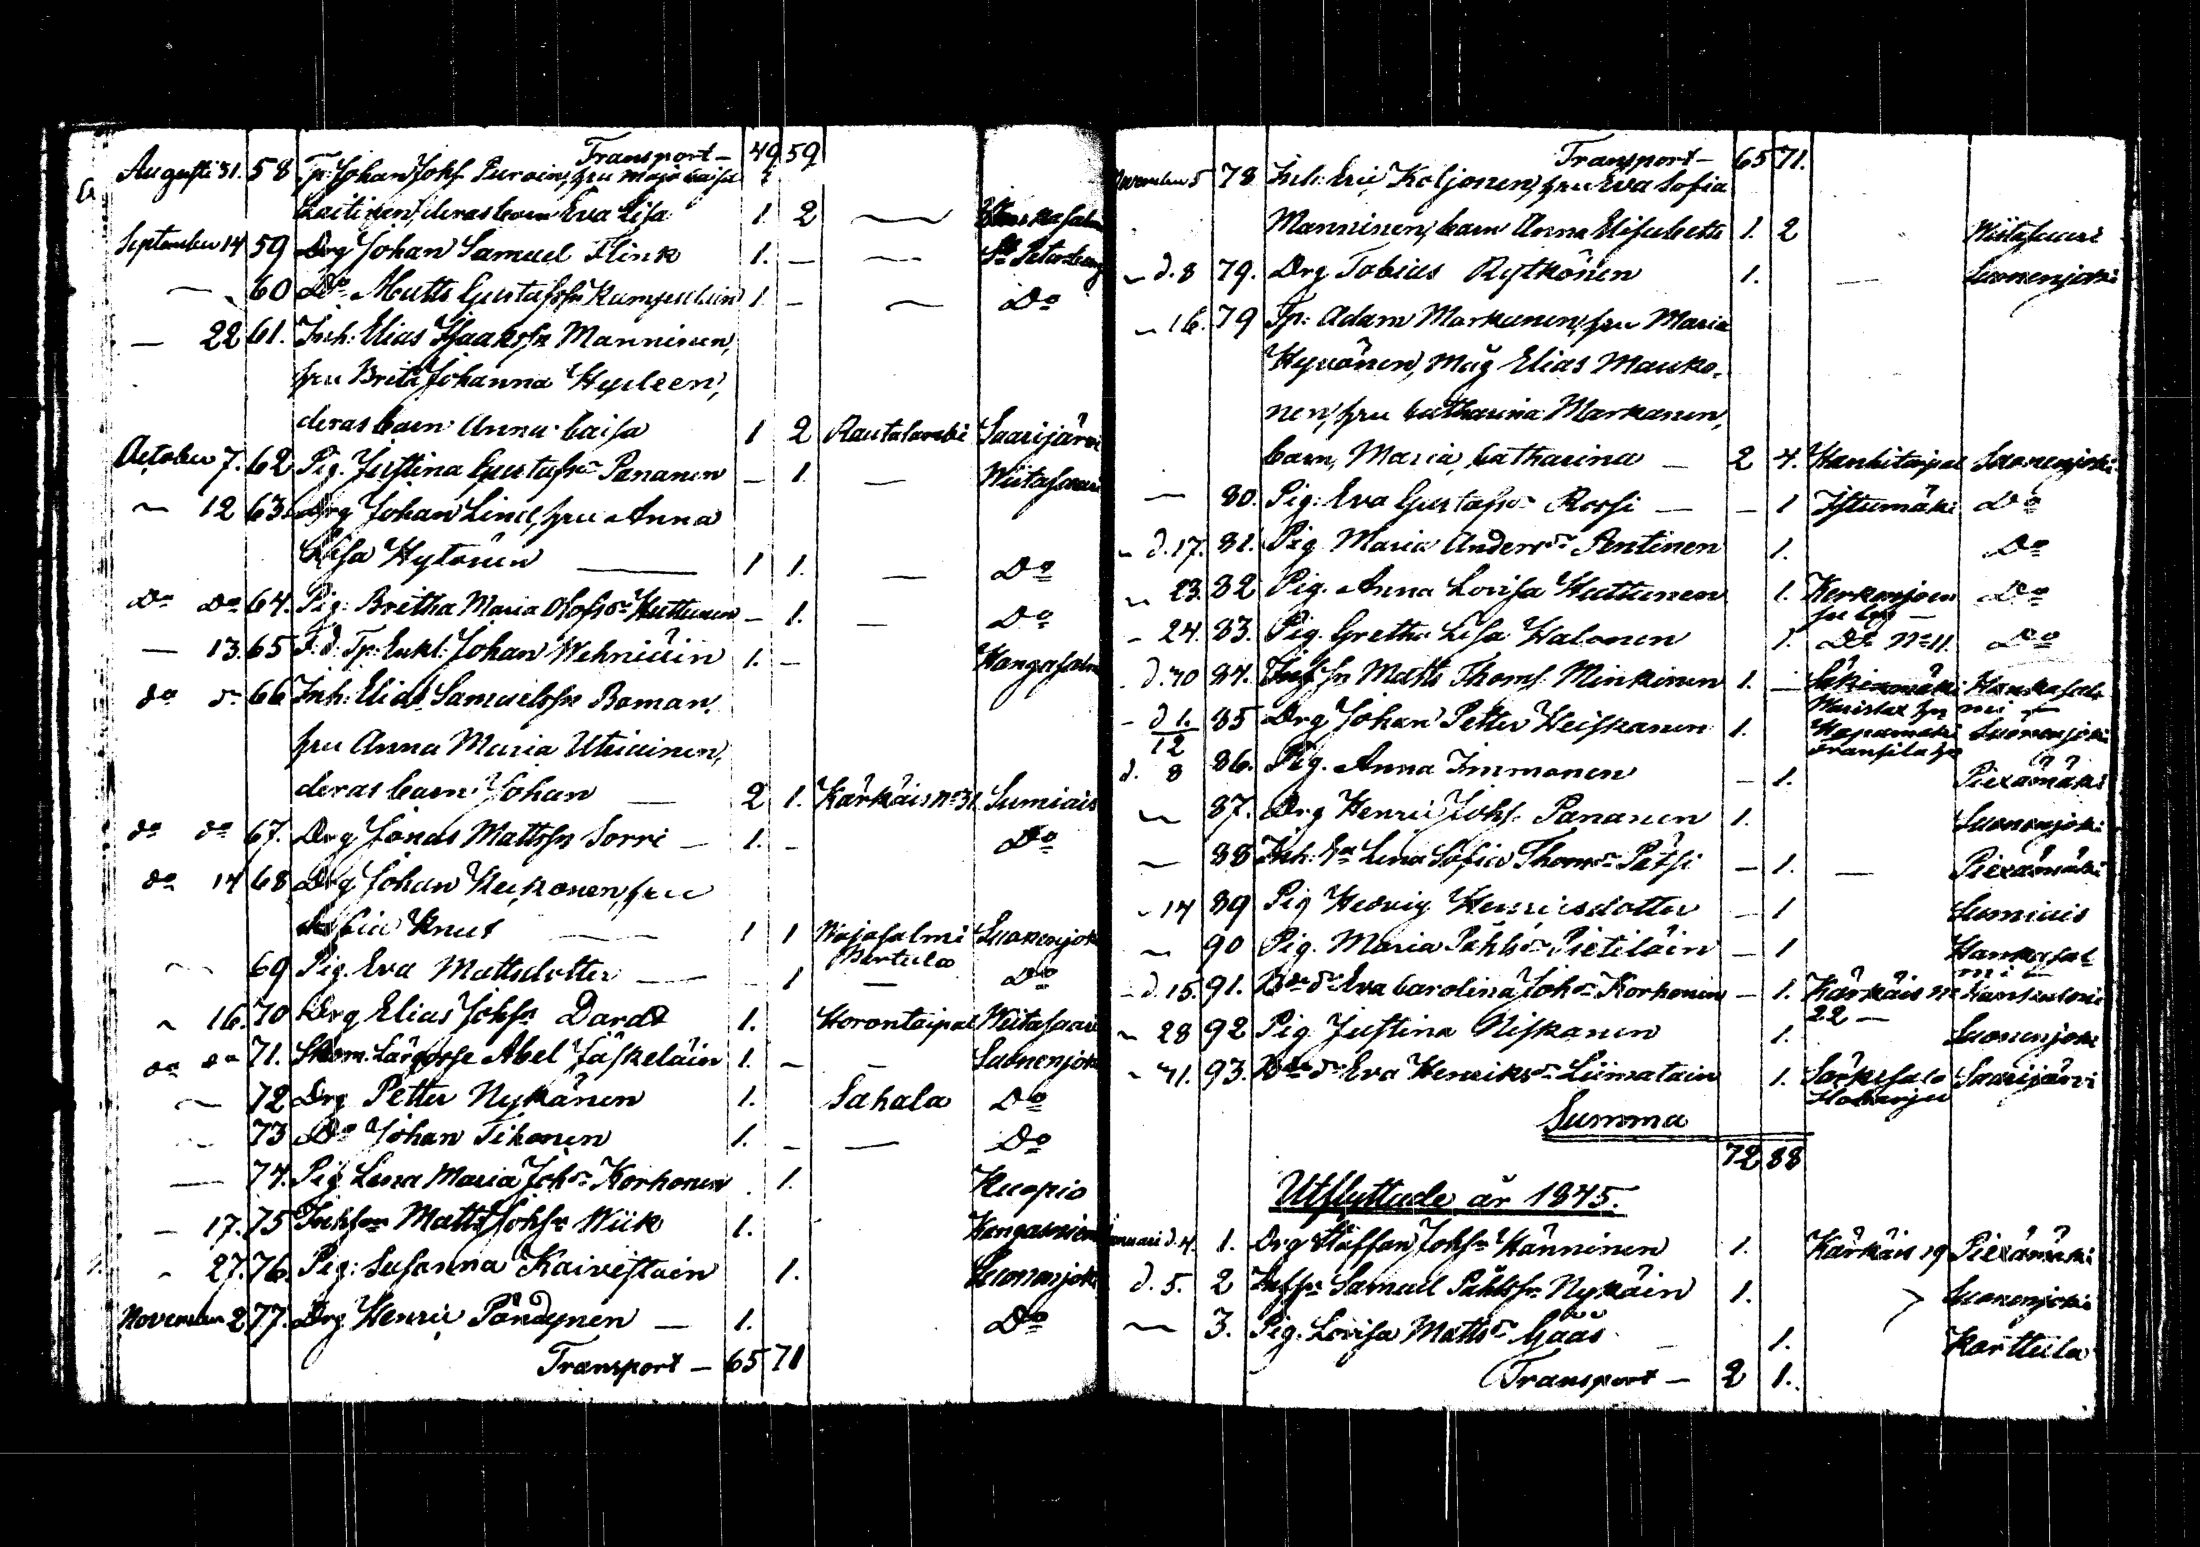 Transport — 49 59
Augusti 31. 58 Tp. Johan Johss Purain, hru Maja Caisa
Laitinen, deras barn Eva Lisa 1. 2 — Hankasalmi
September 14 59 Drg Johan Samuel Flink 1. — — St Petersburg
— 60 Do Matts Gustafssn Kumpulain 1. — — Do
— 22 61. Inh: Elias Isaakssn Manninen,
hru Brita Johanna Hyleen,
deras barn Anna Caisa 1 2 Rautalambi Saarijärvi
October 7. 62 Pig. Justina Gustafsdr Pananen — 1. — Wiitasaari
— 12 63 Drg Johan Lind, hru Anna
Lisa Hytönen — 1 1. — Do
Do Do 64. Pig: Britha Maria Olofsdr Huttunen — 1. — Do
— 13. 65 F.d. Tp: Enkl: Johan Wehniäin 1. — Kangasalmi
do do 66 Inh: Elias Samuelssn Boman,
hru Anna Maria Utriainen,
deras barn Johan — 2 1. Kärkäis No 31. Sumiais
do do 67. Drg Jonas Mattssn Sorri — 1. — Do
do 14 68 Drg Johan Kukonen, hru
Sofia Knut — 1 1 Wajasalmi Suonenjoki
Pertula
— 69 Pig. Eva Mattsdotter — 1 — Do
— 16. 70 Drg Elias Johssn Dardt 1. Korontaipal Wiitasaari
do do 71. Skom. Lärgosse Abel Jäskeläin 1. — — Suonenjoki
— 72 Drg Petter Nykänen 1. Sahala Do
— 73 Do Johan Tikonen 1. — — Do
— 74. Pig Lena Maria Johsdr Korhonen 1. Kuopio
— 17. 75 Inhsn Matts Johssn Wiik 1. Kangasniemi
— 27. 76. Pig: Susanna Kaivistain 1. Suonenjoki
November 2 77. Drg Henric Pöndynen — 1. Do
Transport — 65 71
Transport — 65 71.
November 5 78 Inh: Eric Koljonen, hru Eva Sofia
Manninen, barn Anna Elisabeth 1. 2 Wiitasaari
— d. 8 79. Drg Tobias Rytkönen 1. — Suonenjoki
— 16. 79 Tp: Adam Markanen, hru Maria
Hyvönen, Måg Elias Mauko-
nen, hru Catharina Markanen,
barn, Maria, Catharina — 2 4. Hankitaipal Suonenjoki
— 80. Pig: Eva Gustafsdr Rossi — — 1 Istumäki Do
— d. 17. 81. Pig Maria Andersdr Pentinen 1. Do
— 23. 82 Pig. Anna Lovisa Huttunen 1. Kerkonjoen Do
— 24. 83. Pig. Gretha Lisa Halonen 1. Do No 11. Do
d. 30 84. Matts Thoms. Minkinen 1. — Hankasal-
mi
— d 1. 85 Drg Johan Petter Heiskanen 1. Suonenjoki
12
d. 8 86. Pig. Anna Immonen — 1. Piexämäki
— 87. Drg Henric Johs. Pananen 1. Suonenjoki
— 88 Inh: Ea Lena Sofia Thomsdr Pätsi — 1. — Piexämäki
— 14 89 Pig Hedvig Henricsdotter — 1 Sumiais
— 90 Pig. Maria Påhlsdr Pietiläin — 1 Hankasal-
mi
— d. 15. 91. Bdr dr Eva Carolina Johsdr Korhonen — 1. Kärkäis No Hankasalmi
22 —
— 28 92 Pig. Justina Niskanen 1. Suonenjoki
— 31. 93. Bdr dr Eva Henriksdr Liimatain 1. Särkisalo Saarijärvi
Summa
72 88
Utflyttade år 1845.
Januari d. 4. 1. Drg Staffan Johssn Känninen 1. Kärkäis 19 Piexämäki
d. 5. 2 Inhsn Samuel Påhlssn Nykäin 1. Suonenjoki
— 3. Pig. Lovisa Mattsdr Gåås — 1. Karttula
Transport — 2 1.